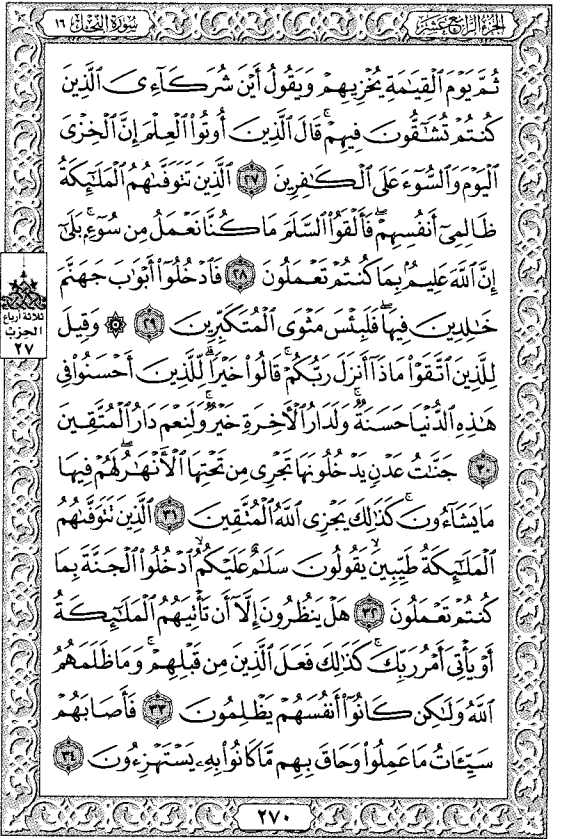 الجزء الرابع عشر
سورة النحل ١٦
ثُمَّ يَوْمَ ٱلْقِيَٰمَةِ يُخْزِيهِمْ وَيَقُولُ أَيْنَ شُرَكَآءِىَ ٱلَّذِينَ
كُنتُمْ تُشَٰٓقُّونَ فِيهِمْ ۚ قَالَ ٱلَّذِينَ أُوتُوا۟ ٱلْعِلْمَ إِنَّ ٱلْخِزْىَ
ٱلْيَوْمَ وَٱلسُّوٓءَ عَلَى ٱلْكَٰفِرِينَ ٢٧ ٱلَّذِينَ تَتَوَفَّىٰهُمُ ٱلْمَلَٰٓئِكَةُ
ظَالِمِىٓ أَنفُسِهِمْ ۖ فَأَلْقَوُا۟ ٱلسَّلَمَ مَا كُنَّا نَعْمَلُ مِن سُوٓءٍۭ ۚ بَلَىٰٓ
إِنَّ ٱللَّهَ عَلِيمٌۢ بِمَا كُنتُمْ تَعْمَلُونَ ٢٨ فَٱدْخُلُوٓا۟ أَبْوَٰبَ جَهَنَّمَ
خَٰلِدِينَ فِيهَا ۖ فَلَبِئْسَ مَثْوَى ٱلْمُتَكَبِّرِينَ ٢٩ ۞ وَقِيلَ
لِلَّذِينَ ٱتَّقَوْا۟ مَاذَآ أَنزَلَ رَبُّكُمْ ۚ قَالُوا۟ خَيْرًا ۗ لِّلَّذِينَ أَحْسَنُوا۟ فِى
هَٰذِهِ ٱلدُّنْيَا حَسَنَةٌ ۚ وَلَدَارُ ٱلْءَاخِرَةِ خَيْرٌ ۚ وَلَنِعْمَ دَارُ ٱلْمُتَّقِينَ
٣٠ جَنَّٰتُ عَدْنٍ يَدْخُلُونَهَا تَجْرِى مِن تَحْتِهَا ٱلْأَنْهَٰرُ ۖ لَهُمْ فِيهَا
مَا يَشَآءُونَ ۚ كَذَٰلِكَ يَجْزِى ٱللَّهُ ٱلْمُتَّقِينَ ٣١ ٱلَّذِينَ تَتَوَفَّىٰهُمُ
ٱلْمَلَٰٓئِكَةُ طَيِّبِينَ ۙ يَقُولُونَ سَلَٰمٌ عَلَيْكُمُ ٱدْخُلُوا۟ ٱلْجَنَّةَ بِمَا
كُنتُمْ تَعْمَلُونَ ٣٢ هَلْ يَنظُرُونَ إِلَّآ أَن تَأْتِيَهُمُ ٱلْمَلَٰٓئِكَةُ
أَوْ يَأْتِىَ أَمْرُ رَبِّكَ ۚ كَذَٰلِكَ فَعَلَ ٱلَّذِينَ مِن قَبْلِهِمْ ۚ وَمَا ظَلَمَهُمُ
ٱللَّهُ وَلَٰكِن كَانُوٓا۟ أَنفُسَهُمْ يَظْلِمُونَ ٣٣ فَأَصَابَهُمْ
سَيِّـَٔاتُ مَا عَمِلُوا۟ وَحَاقَ بِهِم مَّا كَانُوا۟ بِهِۦ يَسْتَهْزِءُونَ ٣٤
ثلاثة أرباع
الحزب
٢٧
٢٧٠